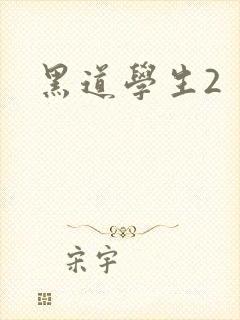 黑道學生2
宋宇